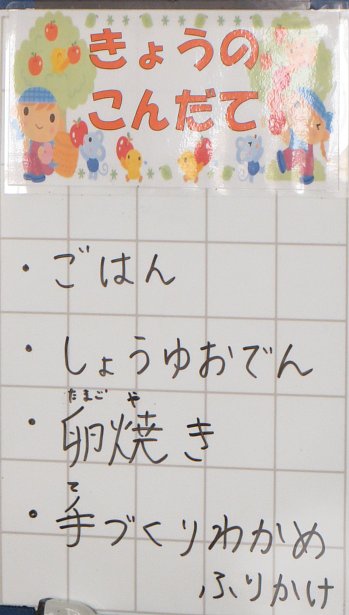 きょうの
こんだて
・ごはん
・しょうゆおでん
たまごや
・卵焼き
て
・手づくりわかめ
ふりかけ